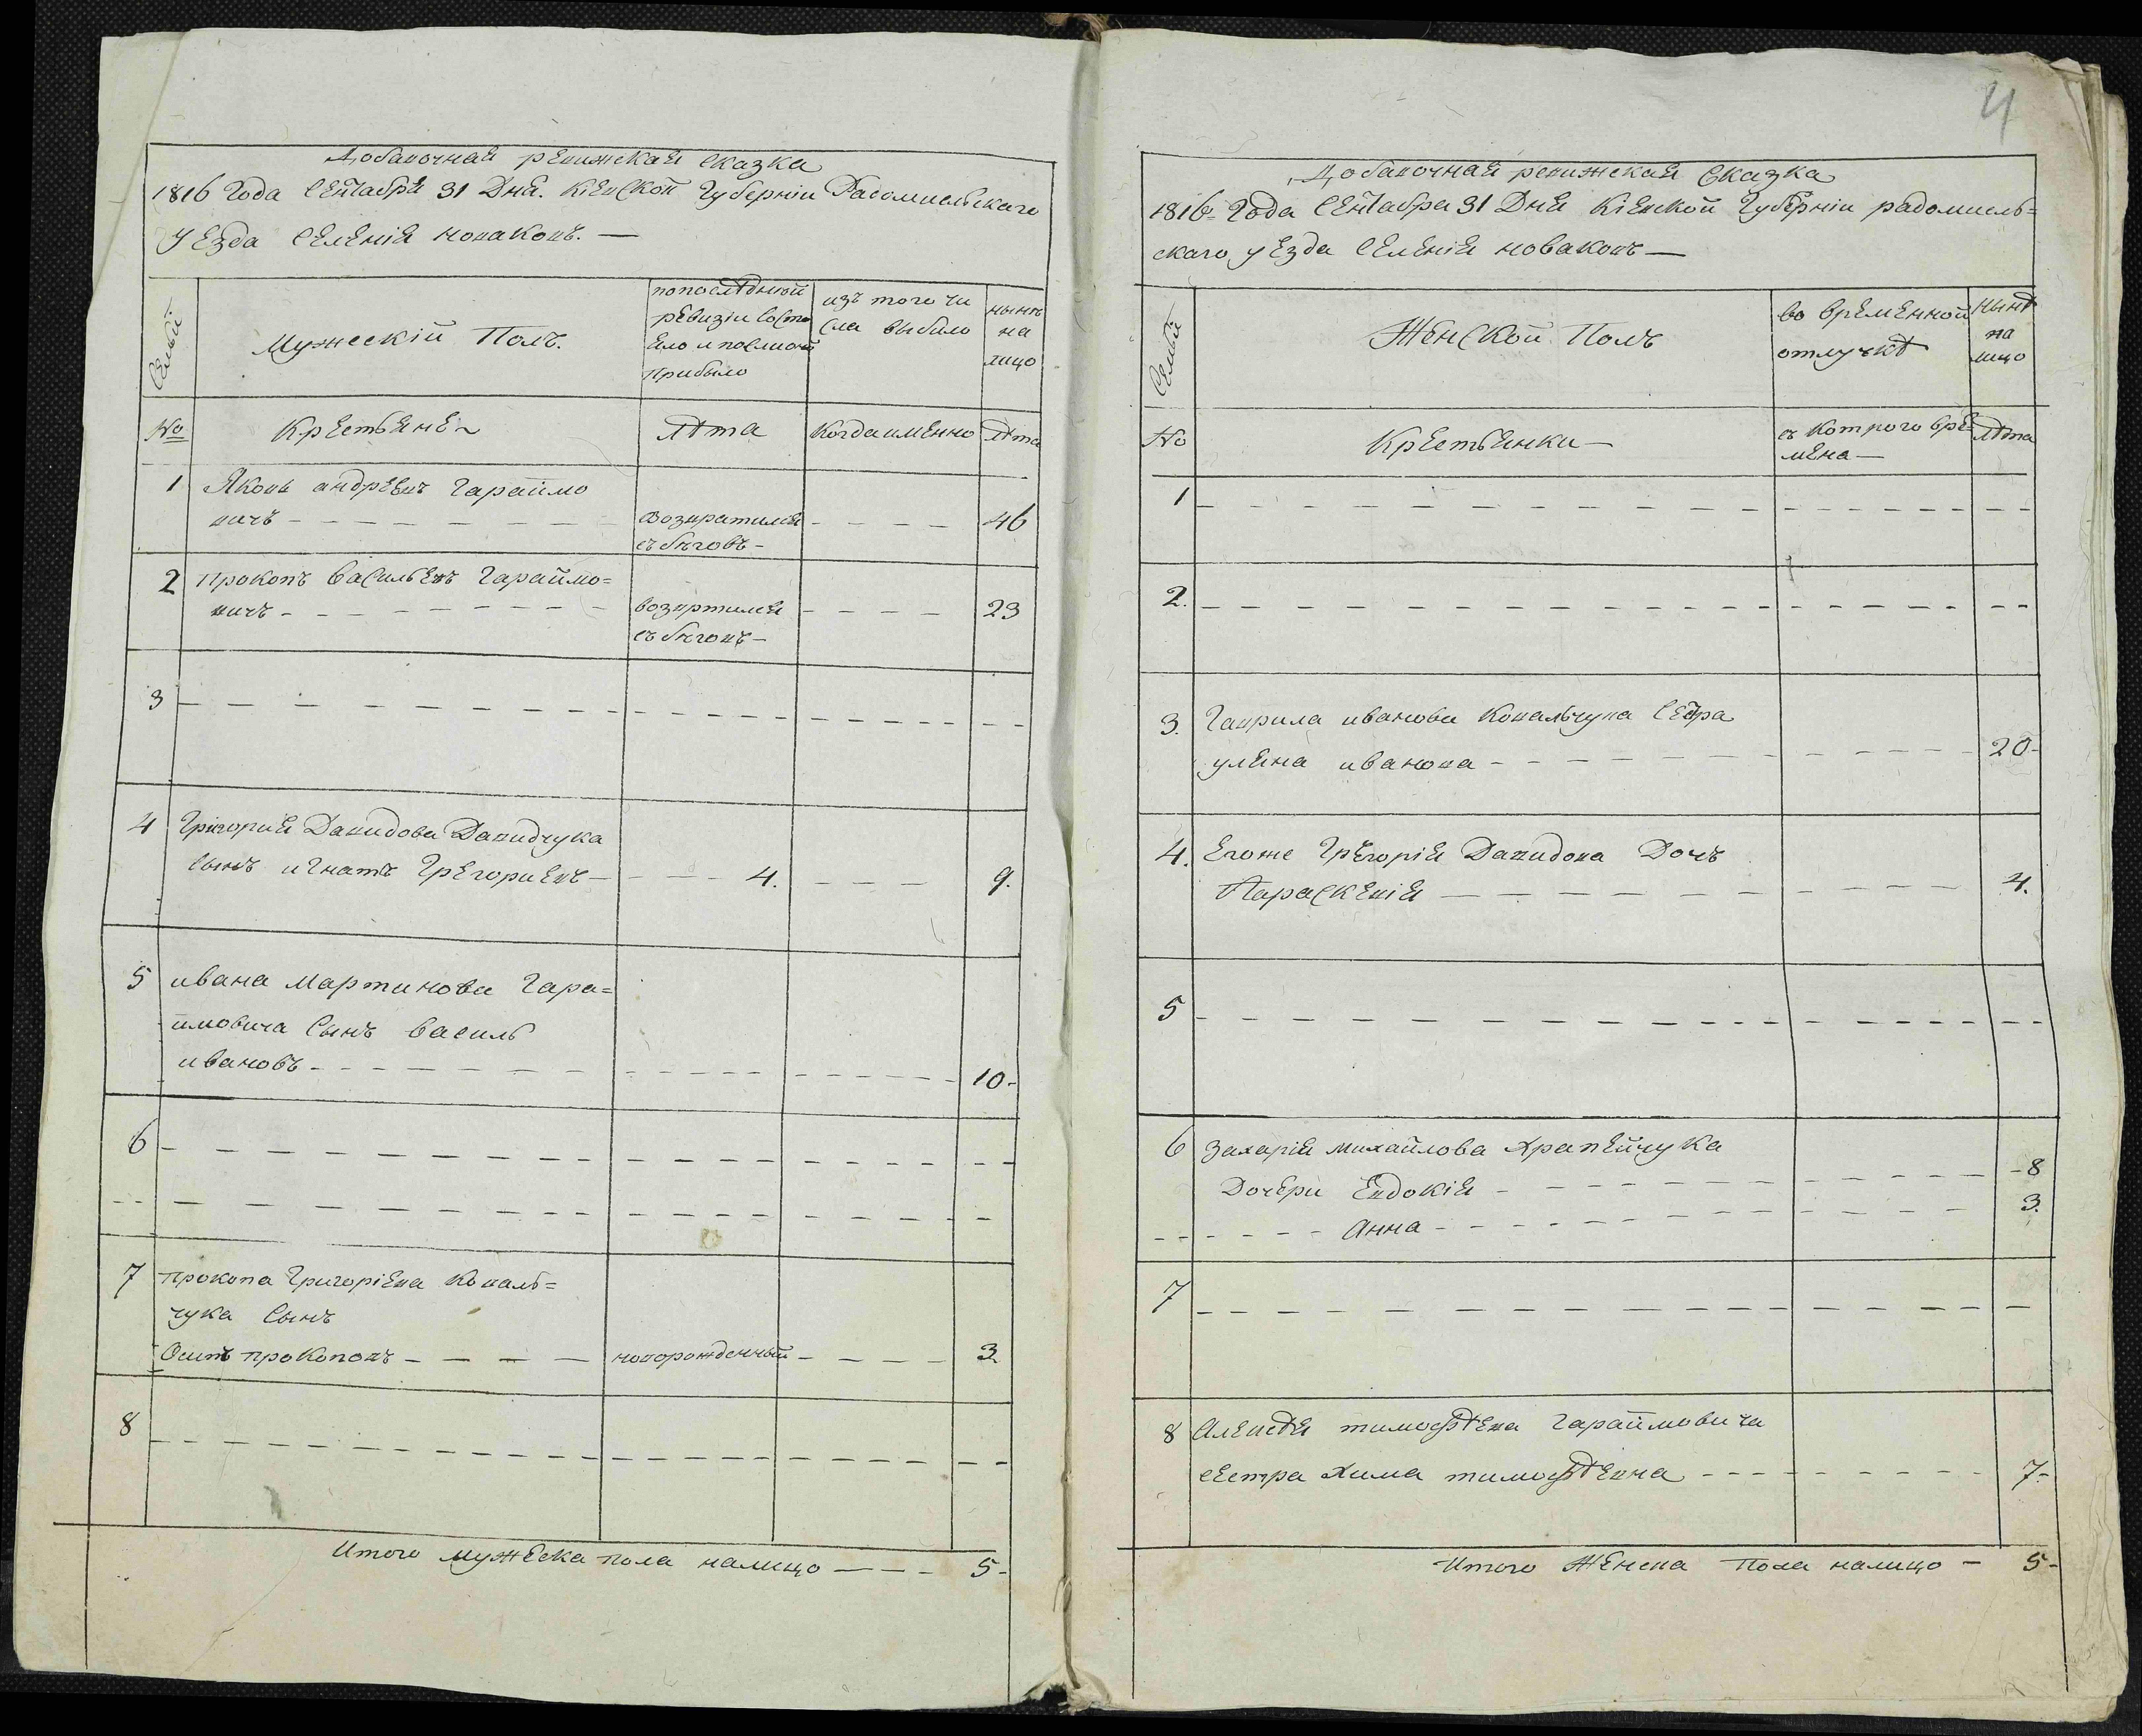 Добавочная ревижская сказка
1816 Года Сентабря 31 Дня. Кіевской Губерніи Радомысльскаго
уезда селенія новаковъ. —
Семьи
Мужескій Полъ.
попоследнюй
ревизіи состо
яло и послиой
прибыло
изъ того чи
сла выбыло
ныне
на
лицо
№
Крестьяне
Лѣта
Когда именно
Лѣта
1 Яковъ андревъ Гараймо
вичъ — возвратился 46
съ беговъ —
2 прокопъ васильевъ Гараймо=
вичъ — возвртился 23
съ беговъ —
3
4 Григория Давидова Давидчука
сынъ игнатъ Грегориевъ — 4. 9.
5 ивана мартинова Гара=
ймовича сынъ василь
ивановъ — 10 -
6
7 прокопа Григоріева Коваль=
чука сынъ
Осипъ прокоповъ — новорожденный — 3.
8
Итого мужеска пола налицо — 5 -
4
Добавочная ревижская сказка
1816 Года Сентабра 31 Дня Кіевкой Губерніи радомысль=
скаго уезда селенія новаковъ —
Семьи
Женской Полъ
во временной
отлучкѣ
нынѣ
на
лицо
№
Крестьянки —
съ котрого вре
мена —
Лѣта
1
2.
3. Гаврила иванова Ковальчука сестра
уляна иванова — 20 -
4. Егоже Грегорія Давидова Дочъ
Параскевія — 4.
5
6 Захарія михайлова Храпейчука
Дочери Евдокія — 8
Анна — 3.
7
8 Алексѣя тимофѣева Гараймовича
сестра Хима тимофѣевна — 7 -
Итого Женска Пола налицо — 5 -